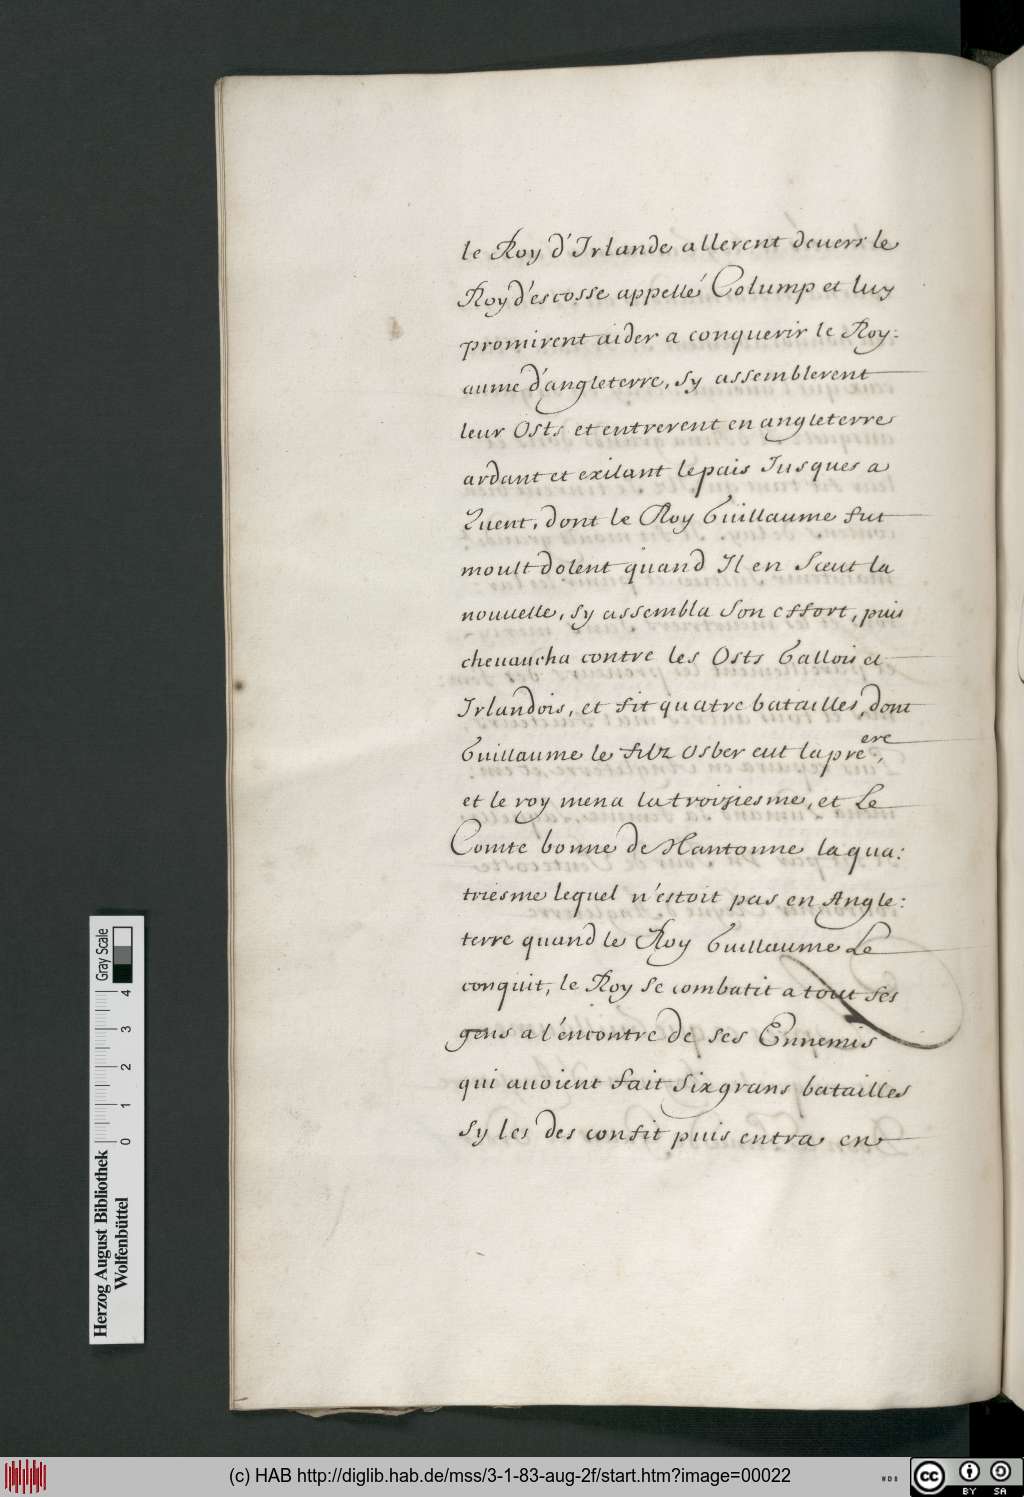 le Roy d'Irlande allerent deuers le
Roy d'escosse appellé Colump et luy
promirent aider a conquerir le Roy:
aume d'angleterre, sy assemblerent
leur Osts et entrerent en angleterre
ardant et exilant le pais Jusques a
Quent, dont le Roy Guillaume fut
moult dolent quand Il en Sceut la
nouuelle, sy assembla Son effort, puis
cheuaucha contre les Osts Gallois et
Irlandois, et fit quatre batailles, dont
Guillaume le filz Osber eut la pre.ere,
et le roy mena la troiziesme, et Le
Comte bonne de Hantonne la qua:
triesme lequel n'estoit pas en Angle:
terre quand le Roy Guillaume Le
conquit, le Roy se combatit a tout ses
gens a l'encontre de ses Ennemis
qui auoient fait Six grans batailles
Sy les des confit puis entra en
Herzog August Bibliothek
Wolfenbüttel
0 1 2 3 4
Gray Scale
(c) HAB http://diglib.hab.de/mss/3-1-83-aug-2f/start.htm?image=00022
WDB
cc
BY SA